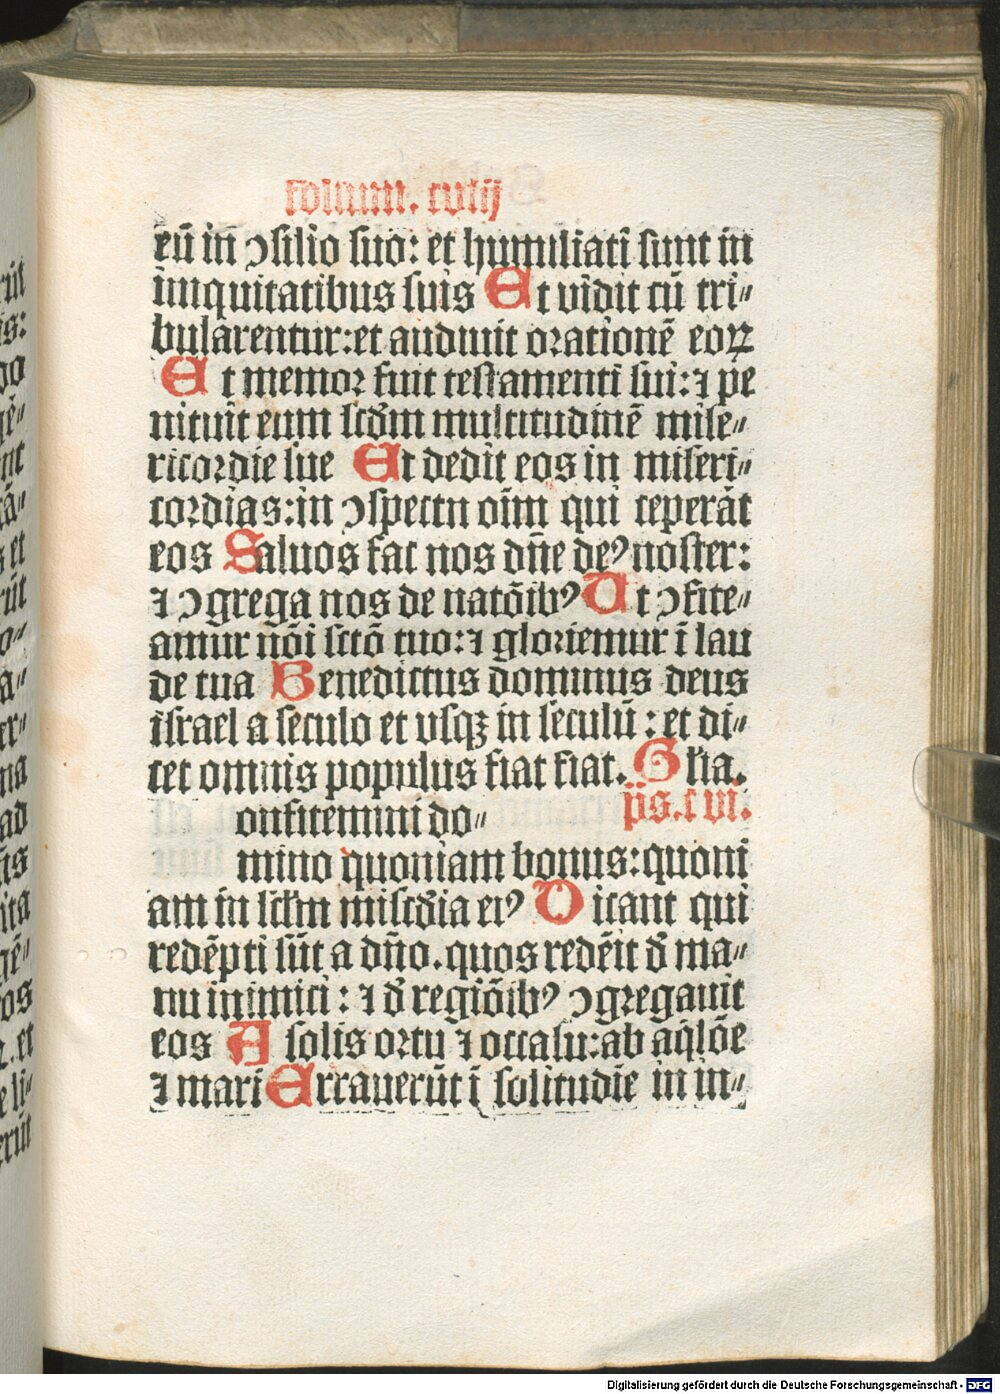 folium. cviij
eū in ↄsilio suo: et humiliati sunt in
iniquitatibus suis Et vidit cū tri⸗
bularentur: et audiuit orationē eoꝝ
Et memor fuit testamenti sui: ⁊ pe
nituit eum scđm multitudinē mise⸗
ricordie sue Et dedit eos in miseri⸗
cordias: in ↄspectu oīm qui ceperāt
eos Saluos fac nos dn̄e deꝰ noster:
⁊ ↄgrega nos de natōibꝰ Ut ↄfite⸗
amur nōi sctō tuo: ⁊ gloriemur ī lau
de tua Benedictus dominus deus
israel a seculo et vsqꝫ in seculū: et di⸗
cet omnis populus fiat fiat. Gl̄ia.
onfitemini do⸗ p̄s. cvi.
mino quoniam bonus: quoni
am in scl̄m mis̄cđia eiꝰ Dicant qui
redēpti sūt a dn̄o. quos redēit đ ma⸗
nu inimici: ⁊ đ regiōibꝰ ↄgregauit
eos A solis ortu ⁊ occasu: ab aq̇lōe
⁊ mari Errauerūt ī solitudīe in in⸗
Digitalisierung gefördert durch die Deutsche Forschungsgemeinschaft - DFG